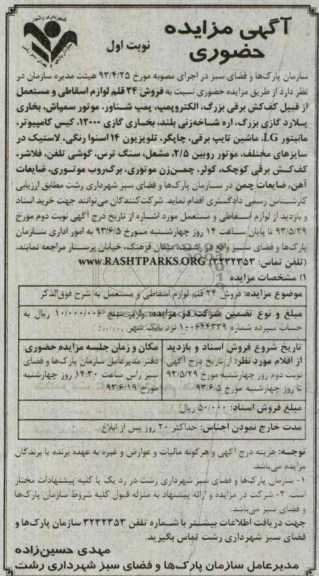 آگهی مزایده حضوری
نوبت اول
سازمان پارک‌ها و فضای سبز در اجرای مصوبه مورخ ۹۳/۴/۲۵ هیئت مدیره سازمان در
نظر دارد از طریق مزایده حضوری نسبت به فروش ۲۴ قلم لوازم اسقاطی و مستعمل
از قبیل کفکش برقی بزرگ، الکتروپمپ، پمپ شناور، موتور سمپاش، بخاری
پلارد گازی بزرگ، اره شاخه‌زنی بلند، بخاری گازی ۱۲۰۰۰، کیس کامپیوتر،
مانیتور LG، ماشین تایپ برقی، چاپگر، تلویزیون ۱۴ اسنوا رنگی، لاستیک در
سایزهای مختلف، موتور روبین ۲/۵، مشعل، سنگ ترس، گوشی تلفن، فلاشر،
کفکش برقی کوچک، کولر، چمن‌زن موتوری، برگ‌روب موتوری، ضایعات
آهن، ضایعات چمن در سازمان پارک‌ها و فضای سبز شهرداری رشت مطابق ارزیابی
کارشناس رسمی دادگستری اقدام نماید. شرکت‌کنندگان می‌توانند جهت خرید اسناد
و بازدید از لوازم اسقاطی و مستعمل مورد اشاره از تاریخ درج آگهی نوبت دوم مورخ
۹۳/۵/۲۹ تا پایان ساعت ۱۴ روز چهارشنبه مورخ ۹۳/۶/۵ به امور اداری سازمان
پارک‌ها و فضای سبز واقع در رشت، فرهنگ، خیابان پرستار مراجعه نمایند.
(تلفن تماس: ۳۲۳۲۳۵۲) www.RASHTPARKS.ORG
۱) مشخصات مزایده
موضوع مزایده: فروش ۲۴ قلم لوازم اسقاطی و مستعمل به شرح فوق‌الذکر
مبلغ و نوع تضمین شرکت در مزایده: واریز مبلغ ۱۰/۰۰۰/۰۰۰ ریال به
حساب سپرده شماره ۱۰۰۶۴۴۳۳۹ نزد بانک شهر
تاریخ شروع فروش اسناد و بازدید از اقلام مورد نظر: از تاریخ درج آگهی نوبت دوم روز چهارشنبه مورخ ۹۳/۵/۲۹ تا روز چهارشنبه مورخ ۹۳/۶/۵
مکان و زمان جلسه مزایده حضوری: دفتر مدیرعامل سازمان پارک‌ها و فضای سبز راس ساعت ۱۴:۳۰ روز چهارشنبه مورخ ۹۳/۶/۱۹
مبلغ فروش اسناد: ۵۰/۰۰۰ ریال
مدت خارج نمودن اجناس: حداکثر ۲۰ روز پس از ابلاغ
توجه: هزینه درج آگهی و هرگونه مالیات و عوارض و غیره به عهده برنده یا برندگان
مزایده می‌باشد.
۱- سازمان پارک‌ها و فضای سبز شهرداری رشت در رد یک یا کلیه پیشنهادات مختار
است. ۲- شرکت در مزایده و ارائه پیشنهاد به منزله قبول کلیه شروط سازمان پارک‌ها
و فضای سبز می‌باشد.
جهت دریافت اطلاعات بیشتر با شماره تلفن ۳۲۳۲۳۵۳ سازمان پارک‌ها و
فضای سبز شهرداری رشت تماس بگیرید.
مهدی حسین‌زاده
مدیرعامل سازمان پارک‌ها و فضای سبز شهرداری رشت